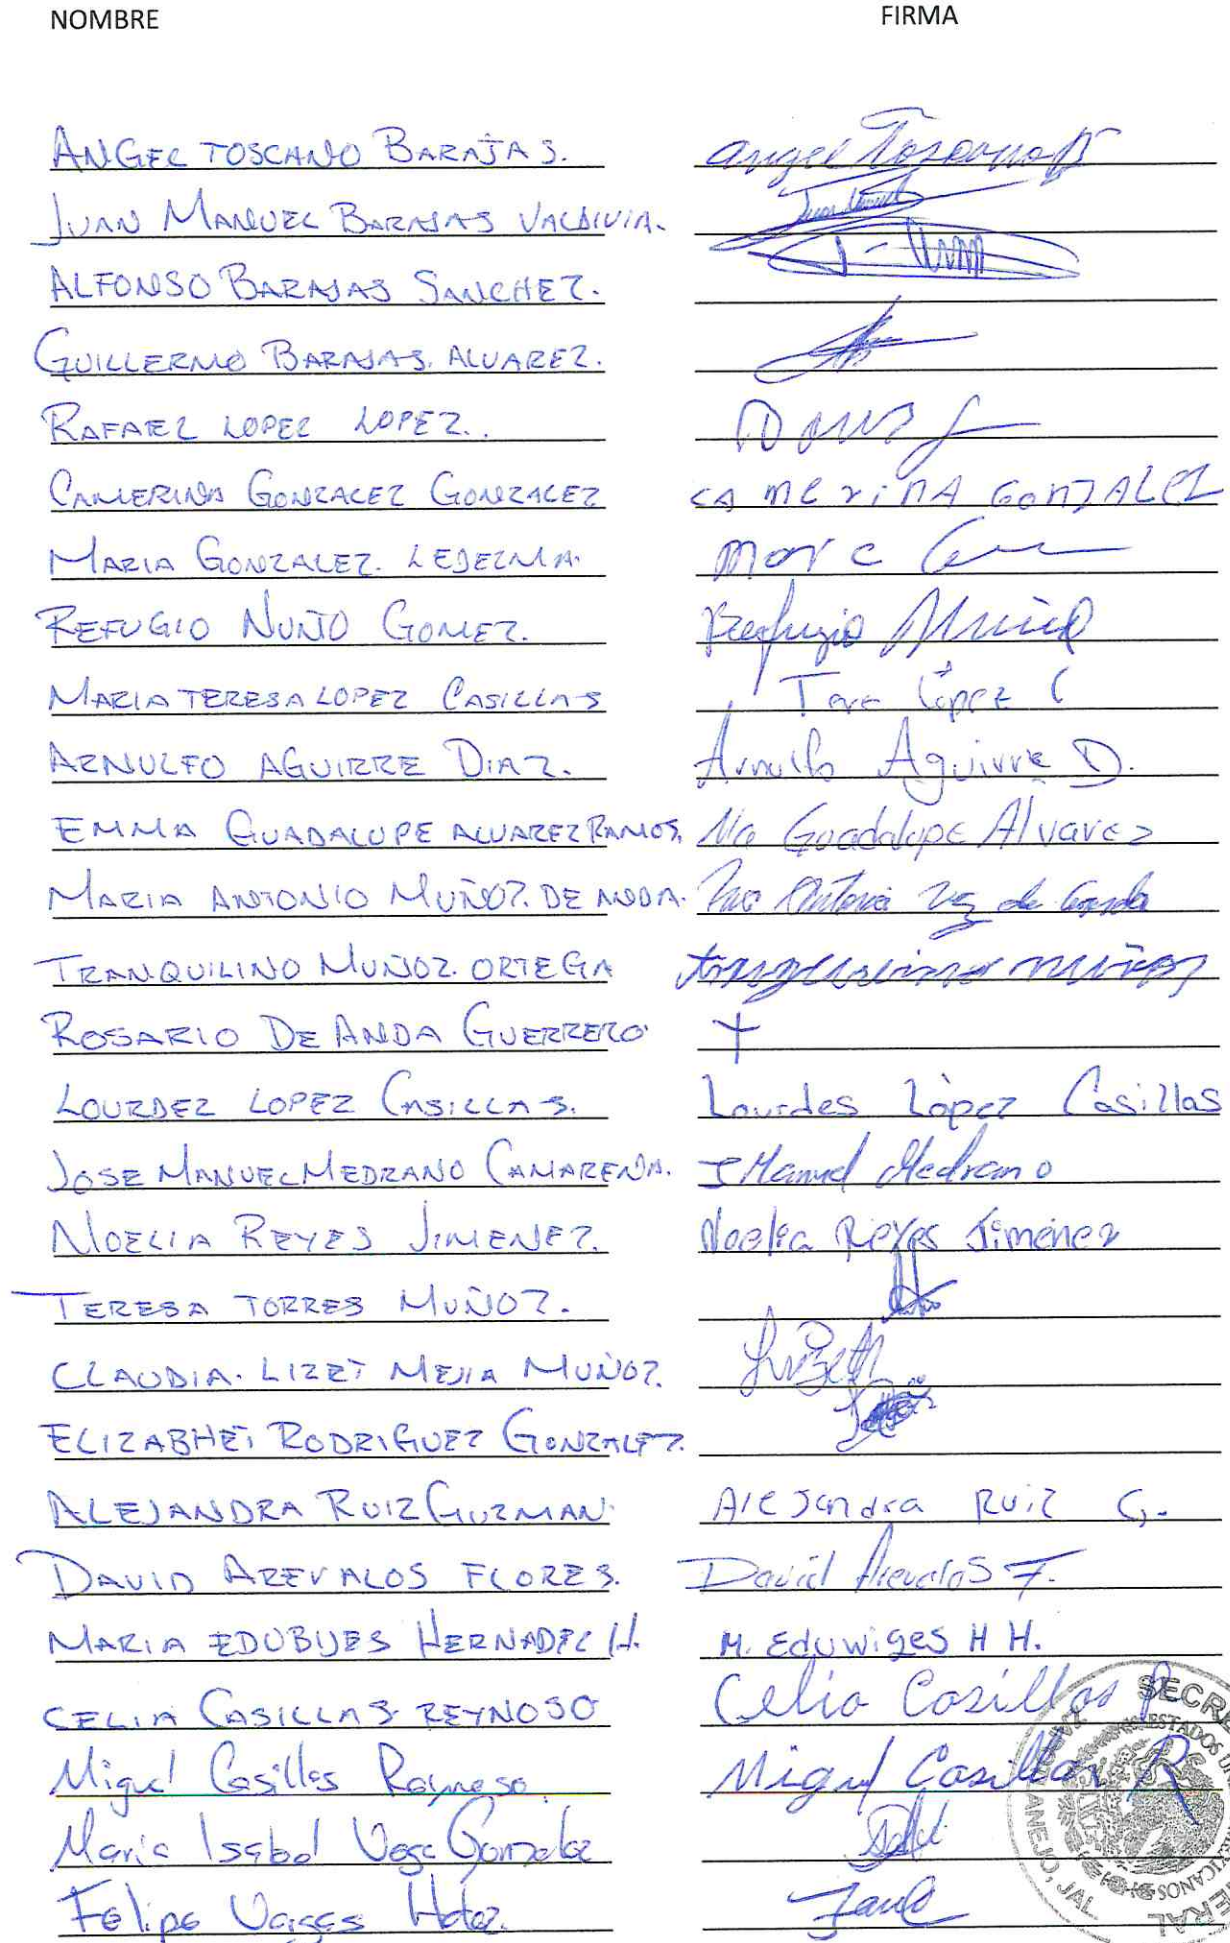 NOMBRE FIRMA
ANGEL TOSCANO BARAJAS. Angel Toscano B
JUAN MANUEL BARAJAS VALDIVIA. Juan Manuel
ALFONSO BARAJAS SANCHEZ.
GUILLERMO BARAJAS. ALVAREZ.
RAFAEL LOPEZ LOPEZ..
CAMERINA GONZALEZ GONZALEZ CAMERINA GONZALEZ
MARIA GONZALEZ. LEDEZMA.
REFUGIO NUÑO GOMEZ. Refugio Nuño
MARIA TERESA LOPEZ CASILLAS Tere López C
ARNULFO AGUIRRE DIAZ. Arnulfo Aguirre D.
EMMA GUADALUPE ALVAREZ RAMOS. Ma Guadalupe Alvarez
MARIA ANTONIO MUÑOZ. DE ANDA. Ma Antonia de Anda
TRANQUILINO MUÑOZ. ORTEGA Muñoz
ROSARIO DE ANDA GUERRERO
LOURDEZ LOPEZ CASILLAS. Lourdes Lòpez Casillas
JOSE MANUEL MEDRANO CAMARENA. J Manuel Medrano
NOELIA REYES JIMENEZ. Noelia Reyes Jiménez
TERESA TORRES MUÑOZ.
CLAUDIA. LIZET MEJIA MUÑOZ. Lizeth
ELIZABHET RODRIGUEZ GONZALEZ.
ALEJANDRA RUIZ GUZMAN. Alejandra Ruiz G.
DAVID AREVALOS FLORES. David Arevalos F.
MARIA EDUBIJES HERNADEZ H. M. Eduwiges H H.
CELIA CASILLAS REYNOSO Celia Casillas R
Miguel Casillas Reynoso Miguel Casillas R
Maria Isabel Vega Gonzalez
Felipe Vargas Hdez.
SECRE
ESTADOS UN
MEXICANOS
ANEJO, JAL.